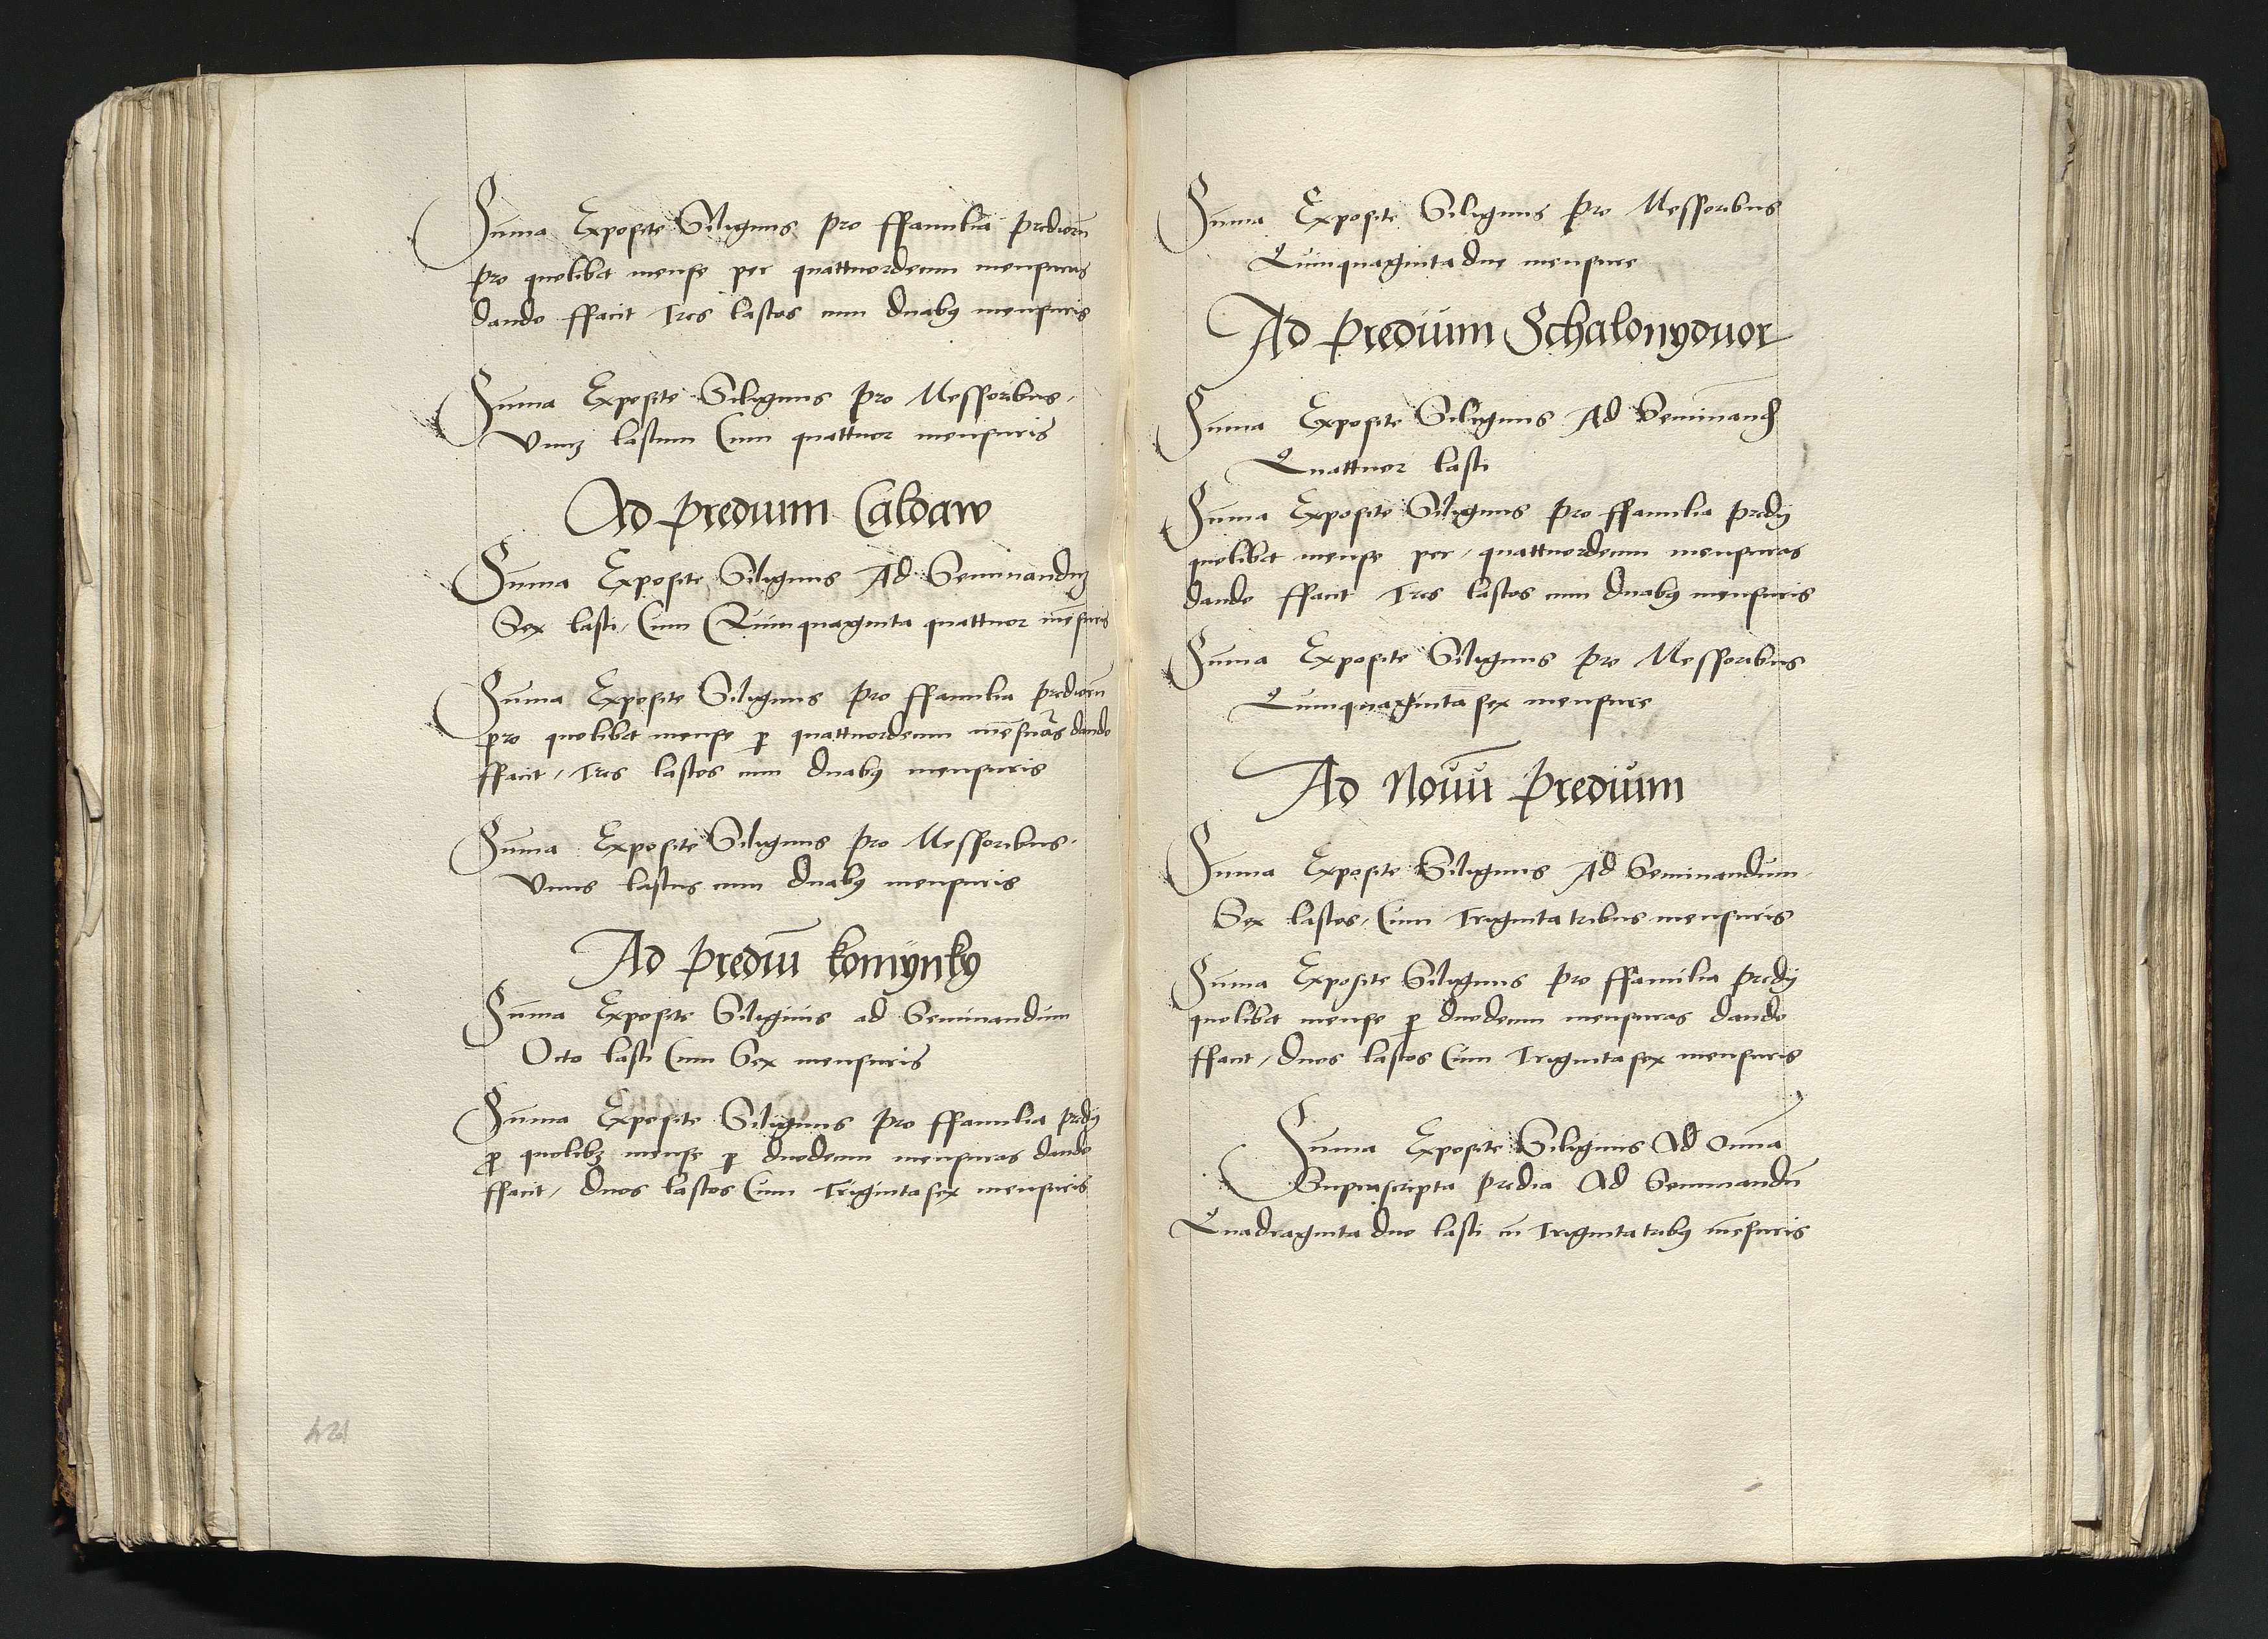 Suma Exposite Siliginis pro ffamilia prediorū
pro quolibet mense per quattuordecim mensuras
dando ffacit Tres lastos cum duabꝰ mensuris
Suma Exposite Siliginis pro Messoribus
Vnuꝫ lastum Cum quattuor mensuris
Ad predium Caldaw
Suma Exposite Siliginis Ad Seminanduꝫ
Sex lasti, Cum Quinquaginta quattuor mēsuris
Suma Exposite Siliginis pro ffamilia prediorū
pro quolibet mense ꝑ quattuordecim mēsuras dando
ffacit, Tres lastos cum duabꝰ mensuris
Suma Exposite Siliginis pro Messoribus
Vnus lastus cum duabꝰ mensuris
Ad prediū komÿnky
Suma Exposite Siliginis ad Seminandum
Octo lasti Cum Sex mensuris
Suma Exposite Siliginis pro ffamilia predÿ
ꝓ quolibꝫ mense ꝑ duodecim mensuras dando
ffacit, duos lastos Cum Trigintasex mensuris
124
Suma Exposite Siliginis pro Messoribus
Quinquaginta due mensure
Ad predium Schalonyduor
Suma Exposite Siliginis Ad Seminand
Quattuor lasti
Suma Exposite Siliginis pro ffamilia predÿ
quolibet mense per, quattuordecim mensuras
dando ffacit Tres lastos cum duabꝰ mensuris
Suma Exposite Siliginis pro Messoribus
Quinquaginta sex mensure
Ad Nouū predium
Suma Exposite Siliginis Ad Seminandum
Sex lastos, Cum Triginta tribus mensuris
Suma Exposite Siliginis pro ffamilia predÿ
quolibet mense ꝑ duodecim mensuras dando
ffacit, duos lastos Cum Trigintasex mensuris
Suma Exposite Siliginis Ad omnia
Suprascripta predia Ad Seminandū
Quadraginta duo lasti cū Triginta tribꝰ mēsuris